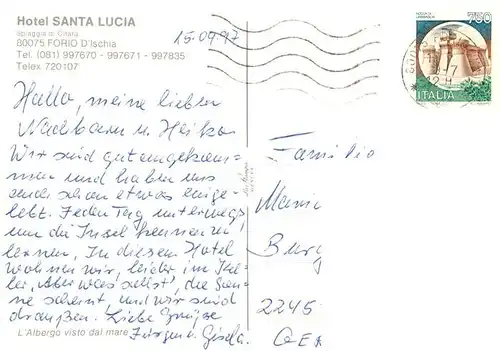 Hotel SANTA LUCIA
Spiaggia di Citara
80075 FORIO D'Ischia
Tel. (081) 997670 - 997671 - 997835
Telex 720107
15.09.97
750
ITALIA
Hallo, meine lieben
Nachbarn u. Heiko
Wir sind gut angekom-
men und haben uns
auch schon etwas einge-
lebt. Jeden Tag unterwegs
um die Insel kennen zu
lernen. In diesem Hotel
wohnen wir, leider im Kel-
ler, die Son-
ne scheint, und wir sind
draußen. Liebe Grüße
Jürgen u. Gisela.
L'Albergo visto dal mare
Familie
2245
GER